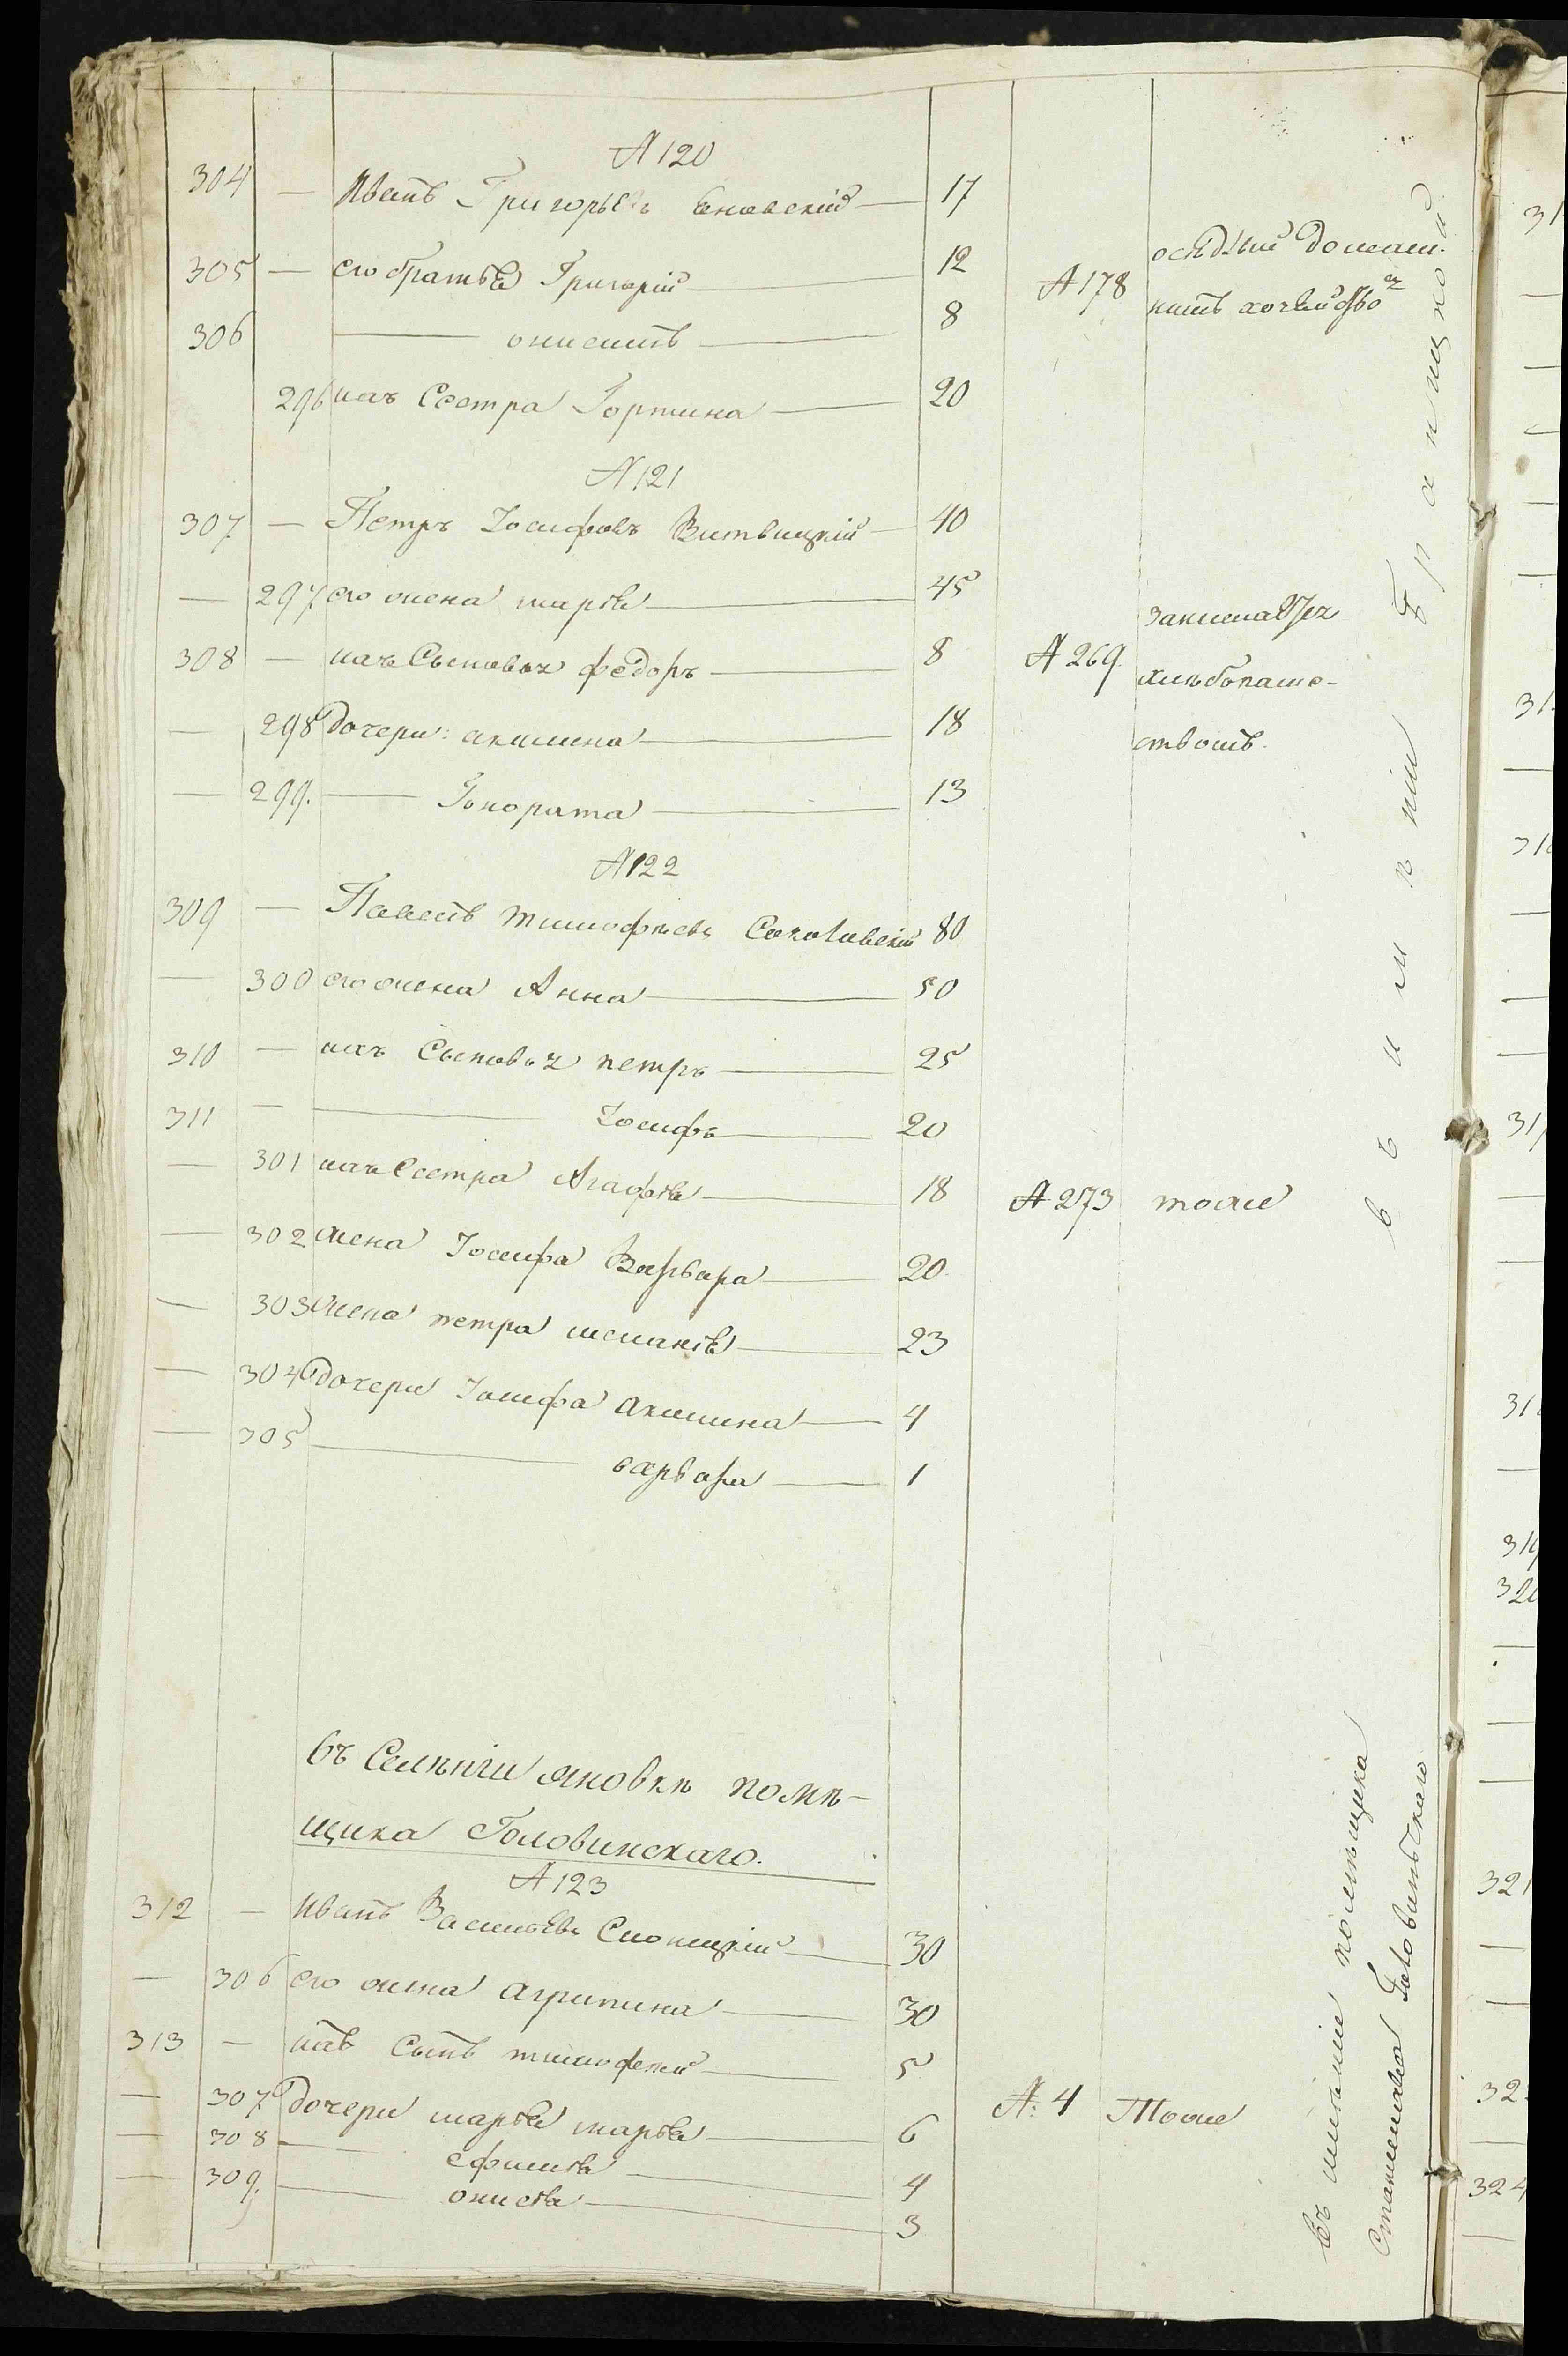 № 120
304 — Иванъ Григорьевъ Яновскій — 17
305 — его братья Григорій — 12
306 — онисимъ — 8
296 ихъ Сестра Гортина — 20
№ 178 осѣдлый домаш.
нимъ хозяйство
№ 121
307 — Петръ Іосифовъ Витвицкій — 40
— 297 его жена марія — 45
308 — ихъ Сыновья федоръ — 8
— 298 дочери: акилина — 18
— 299. — Гонората — 13
№ 269. занимается
хлѣбопаше-
ствомъ.
№ 122
309 — Павелъ тимофѣевъ Соколовскій 80
— 300 его жена Анна — 50
310 — ихъ Сыновья петръ — 25
311 — Іосифъ — 20
— 301 ихъ Сестра Агафія — 18
— 302 жена Іосифа Варвара — 20
— 303 жена петра меланія — 23
— 304 дочери Іосифа Акилина — 4
— 305 — варвара — 1
№ 273 тоже
въ имѣніи
въ Селѣніи яновкѣ помѣ-
щика Головинскаго.
№ 123
312 — Иванъ Васильевъ Слонецкій — 30
— 306 его жена агрипина — 30
313 — ихъ Сынъ тимофей — 5
— 307 дочери марія марія — 6
— 308 — ефимія — 4
— 309. — онисія — 3
№: 4 Тоже
въ имѣніи помѣщика
Станислава Головинскаго